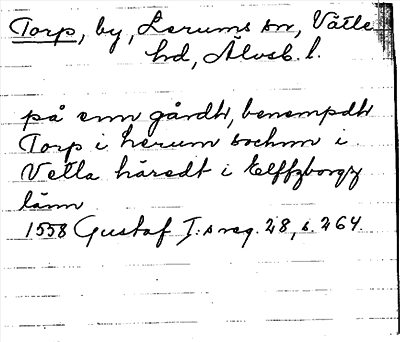 Torp, by, Lerums sn, Vätle
hd, Älvsb. l.
på enn gårdh, benempdh
Torp i Lerum sochnn i
Vetla häredt i Elffzborgz
länn
1558 Gustaf I:s reg. 28, s. 264.